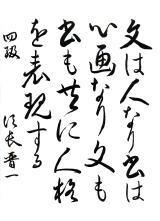 文は人なり書は
心画なり文も
書も共に人格
を表現する
四級 江長晋一